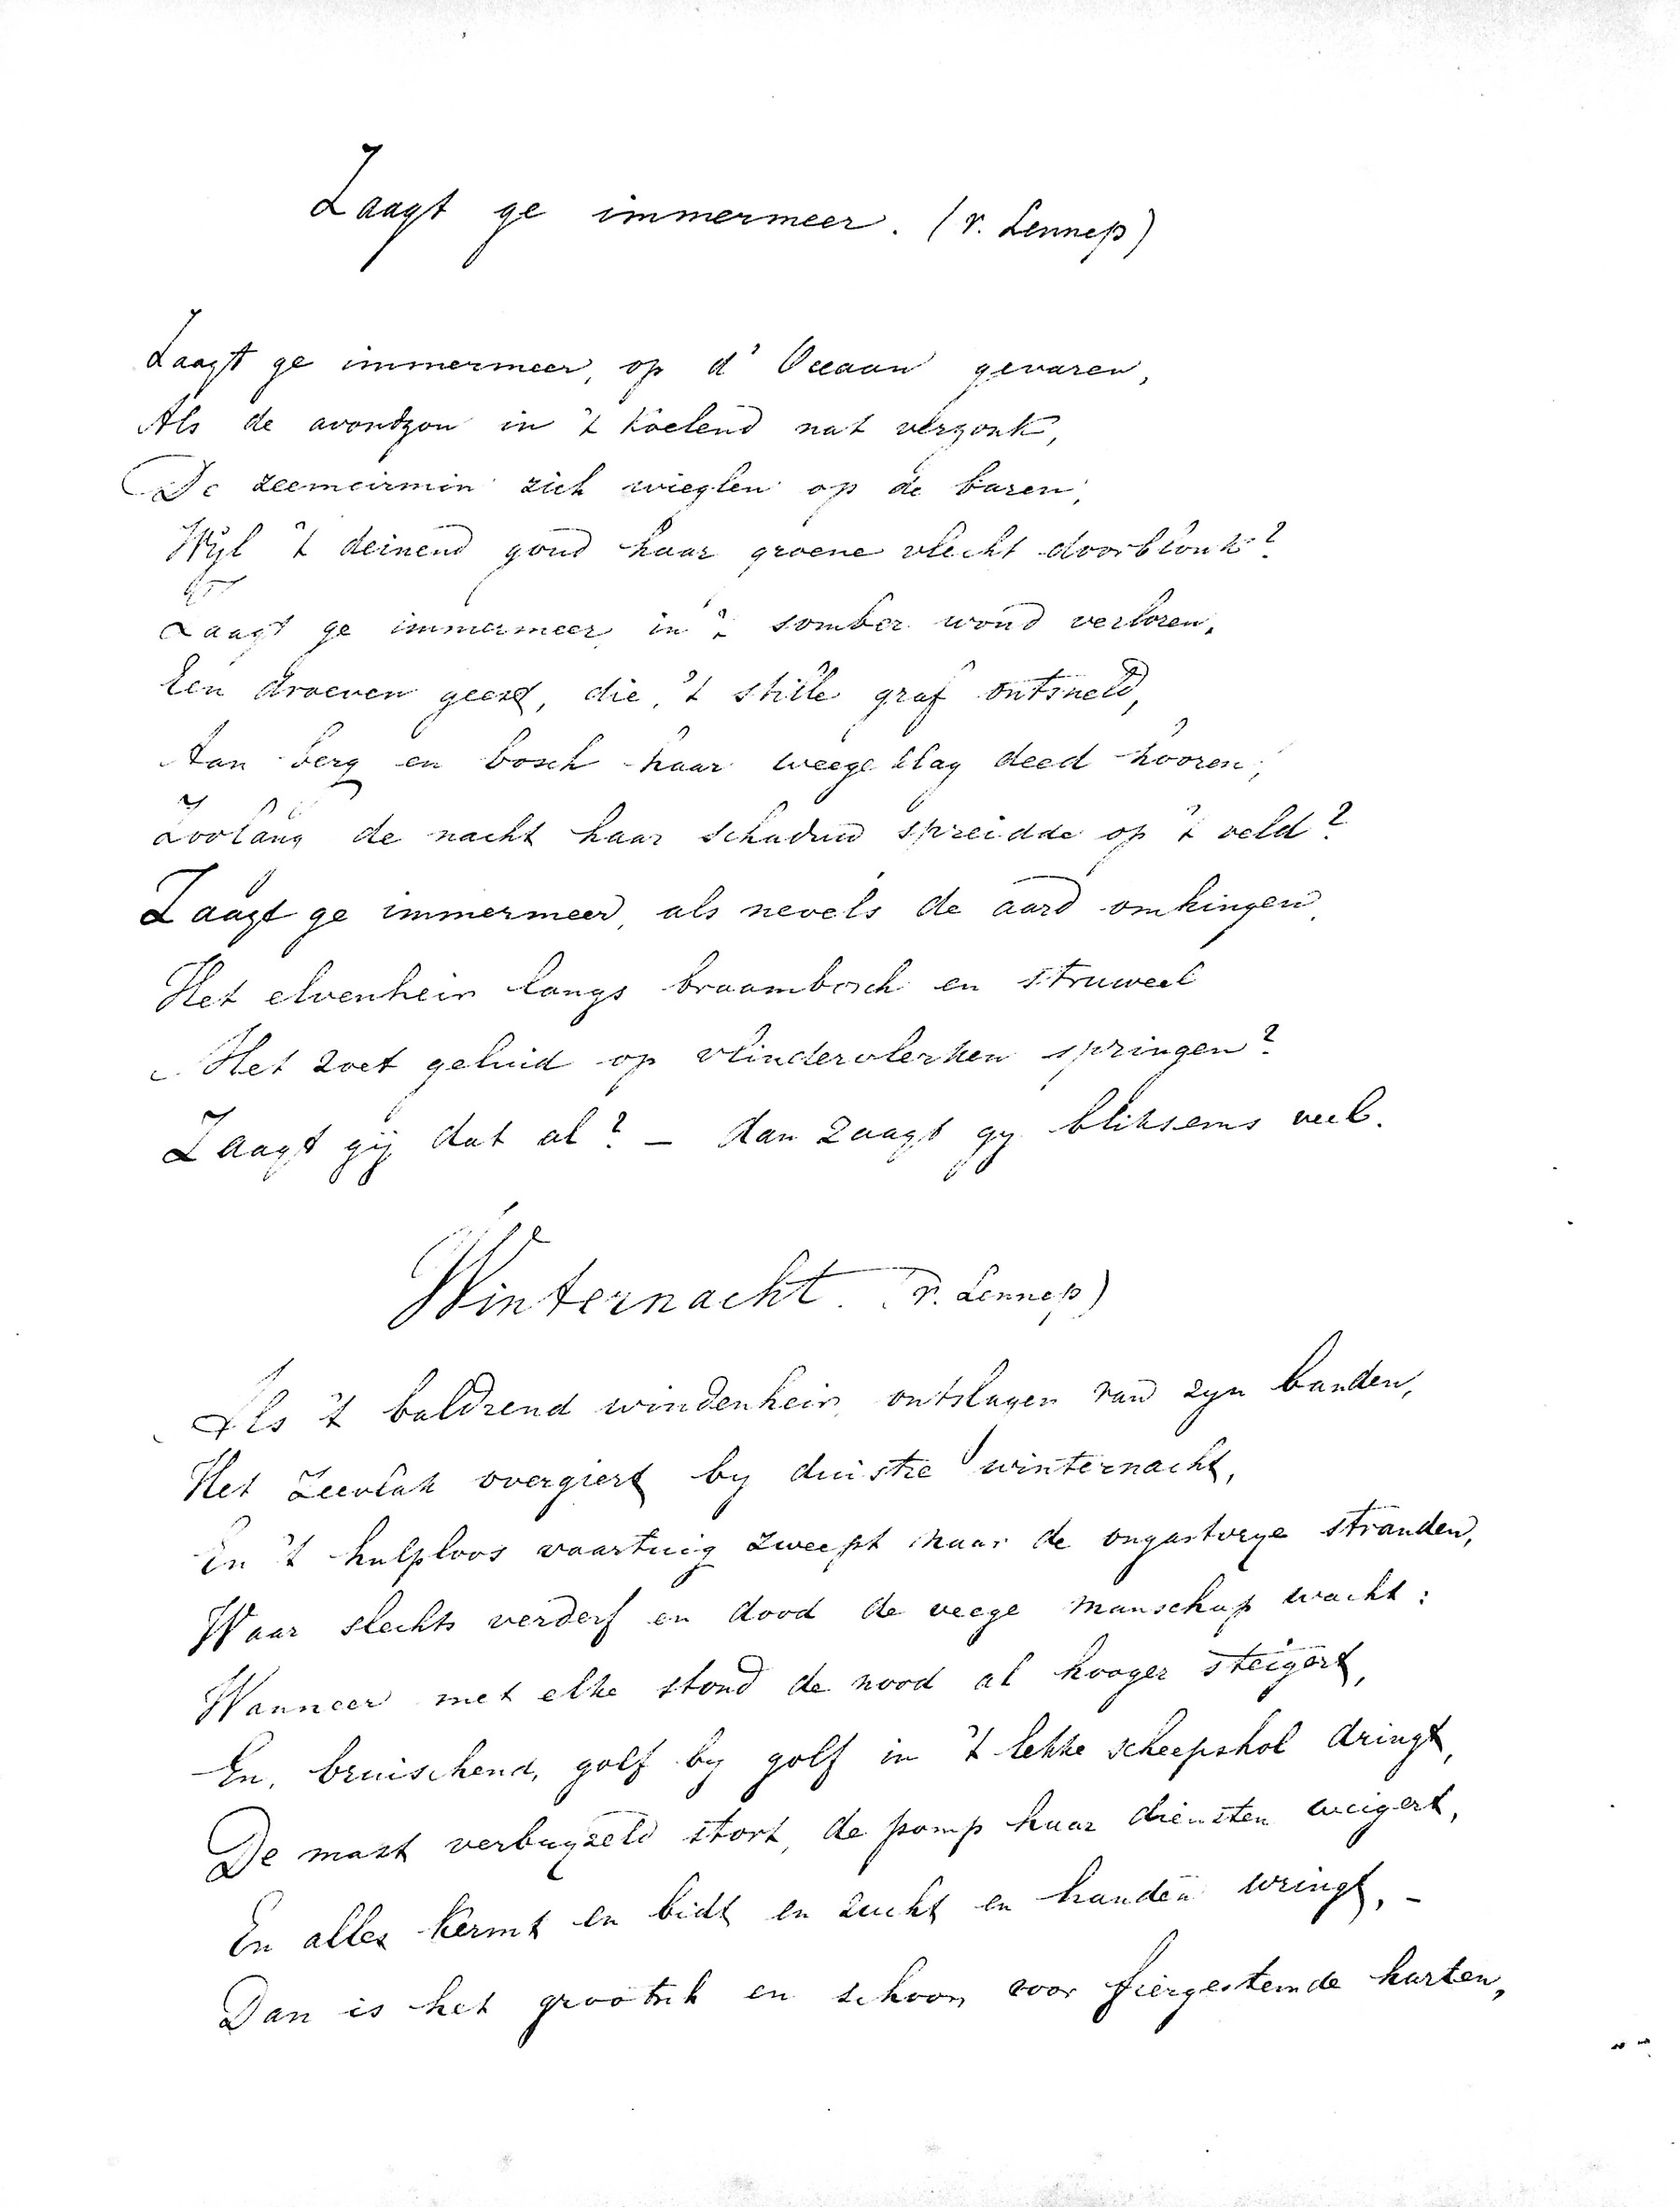 Zaagt ge immermeer. (v. Lennep)
Zaagt ge immermeer, op d' Oceaan gevaren,
Als de avondzon in 't koelend nat verzonk,
De zeemeirmin zich wieglen op de baren,
Wijl 't deinend goud haar groene vlecht doorblonk?
Zaagt ge immermeer, in 't somber woud verloren,
Een droeven geest, die, 't stille graf ontsneld,
Aan berg en bosch haar weegeklag deed hooren,
Zoolang de nacht haar schaduw spreidde op 't veld?
Zaagt ge immermeer, als nevels de aard omhingen,
Het elvenheir langs braambosch en struweel
Met zoet geluid op vlindervlerken springen?
Zaagt gij dat al? – dan zaagt gy bliksems veel.
Winternacht. (v. Lennep)
Als 't baldrend windenheir, ontslagen van zyn banden,
Het zeevlak overgiert by duistre winternacht,
En 't hulploos vaartuig zweept naar de ongastvrye stranden,
Waar slechts verderf en dood de veege manschap wacht:
Wanneer met elke stond de nood al hooger steigert,
En, bruischend, golf by golf in 't lekke scheepshol dringt,
De mast verbryzeld stort, de pomp haar diensten weigert,
En alles kermt en bidt en zucht en handen wringt, –
Dan is het grootsch en schoon voor fiergestemde harten,